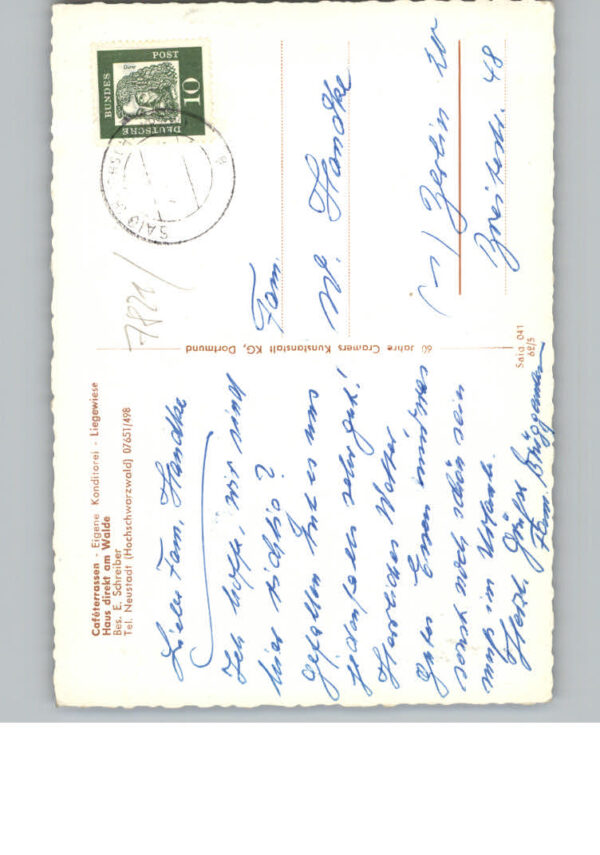 Caféterrassen - Eigene Konditorei - Liegewiese
Haus direkt am Walde
Bes. E. Schreiber
Tel. Neustadt (Hochschwarzwald) 07651/498
Liebe Fam. Handke
Ich hoffe, wir sind
hier richtig?
Gefallen tut es uns
jedenfalls sehr gut!
Herrliches Wetter
gutes Essen und was
sonst noch schön sein
muß im Urlaub.
Herzl. Grüße
Fam. Brüggemann
60 Jahre Cramers Kunstanstalt KG, Dortmund
Saia 041
62/5
7821/
DEUTSCHE
BUNDES
POST
10
Dürer
SAIG
Fam.
W. Handke
1 Berlin 20
Breitestr. 48